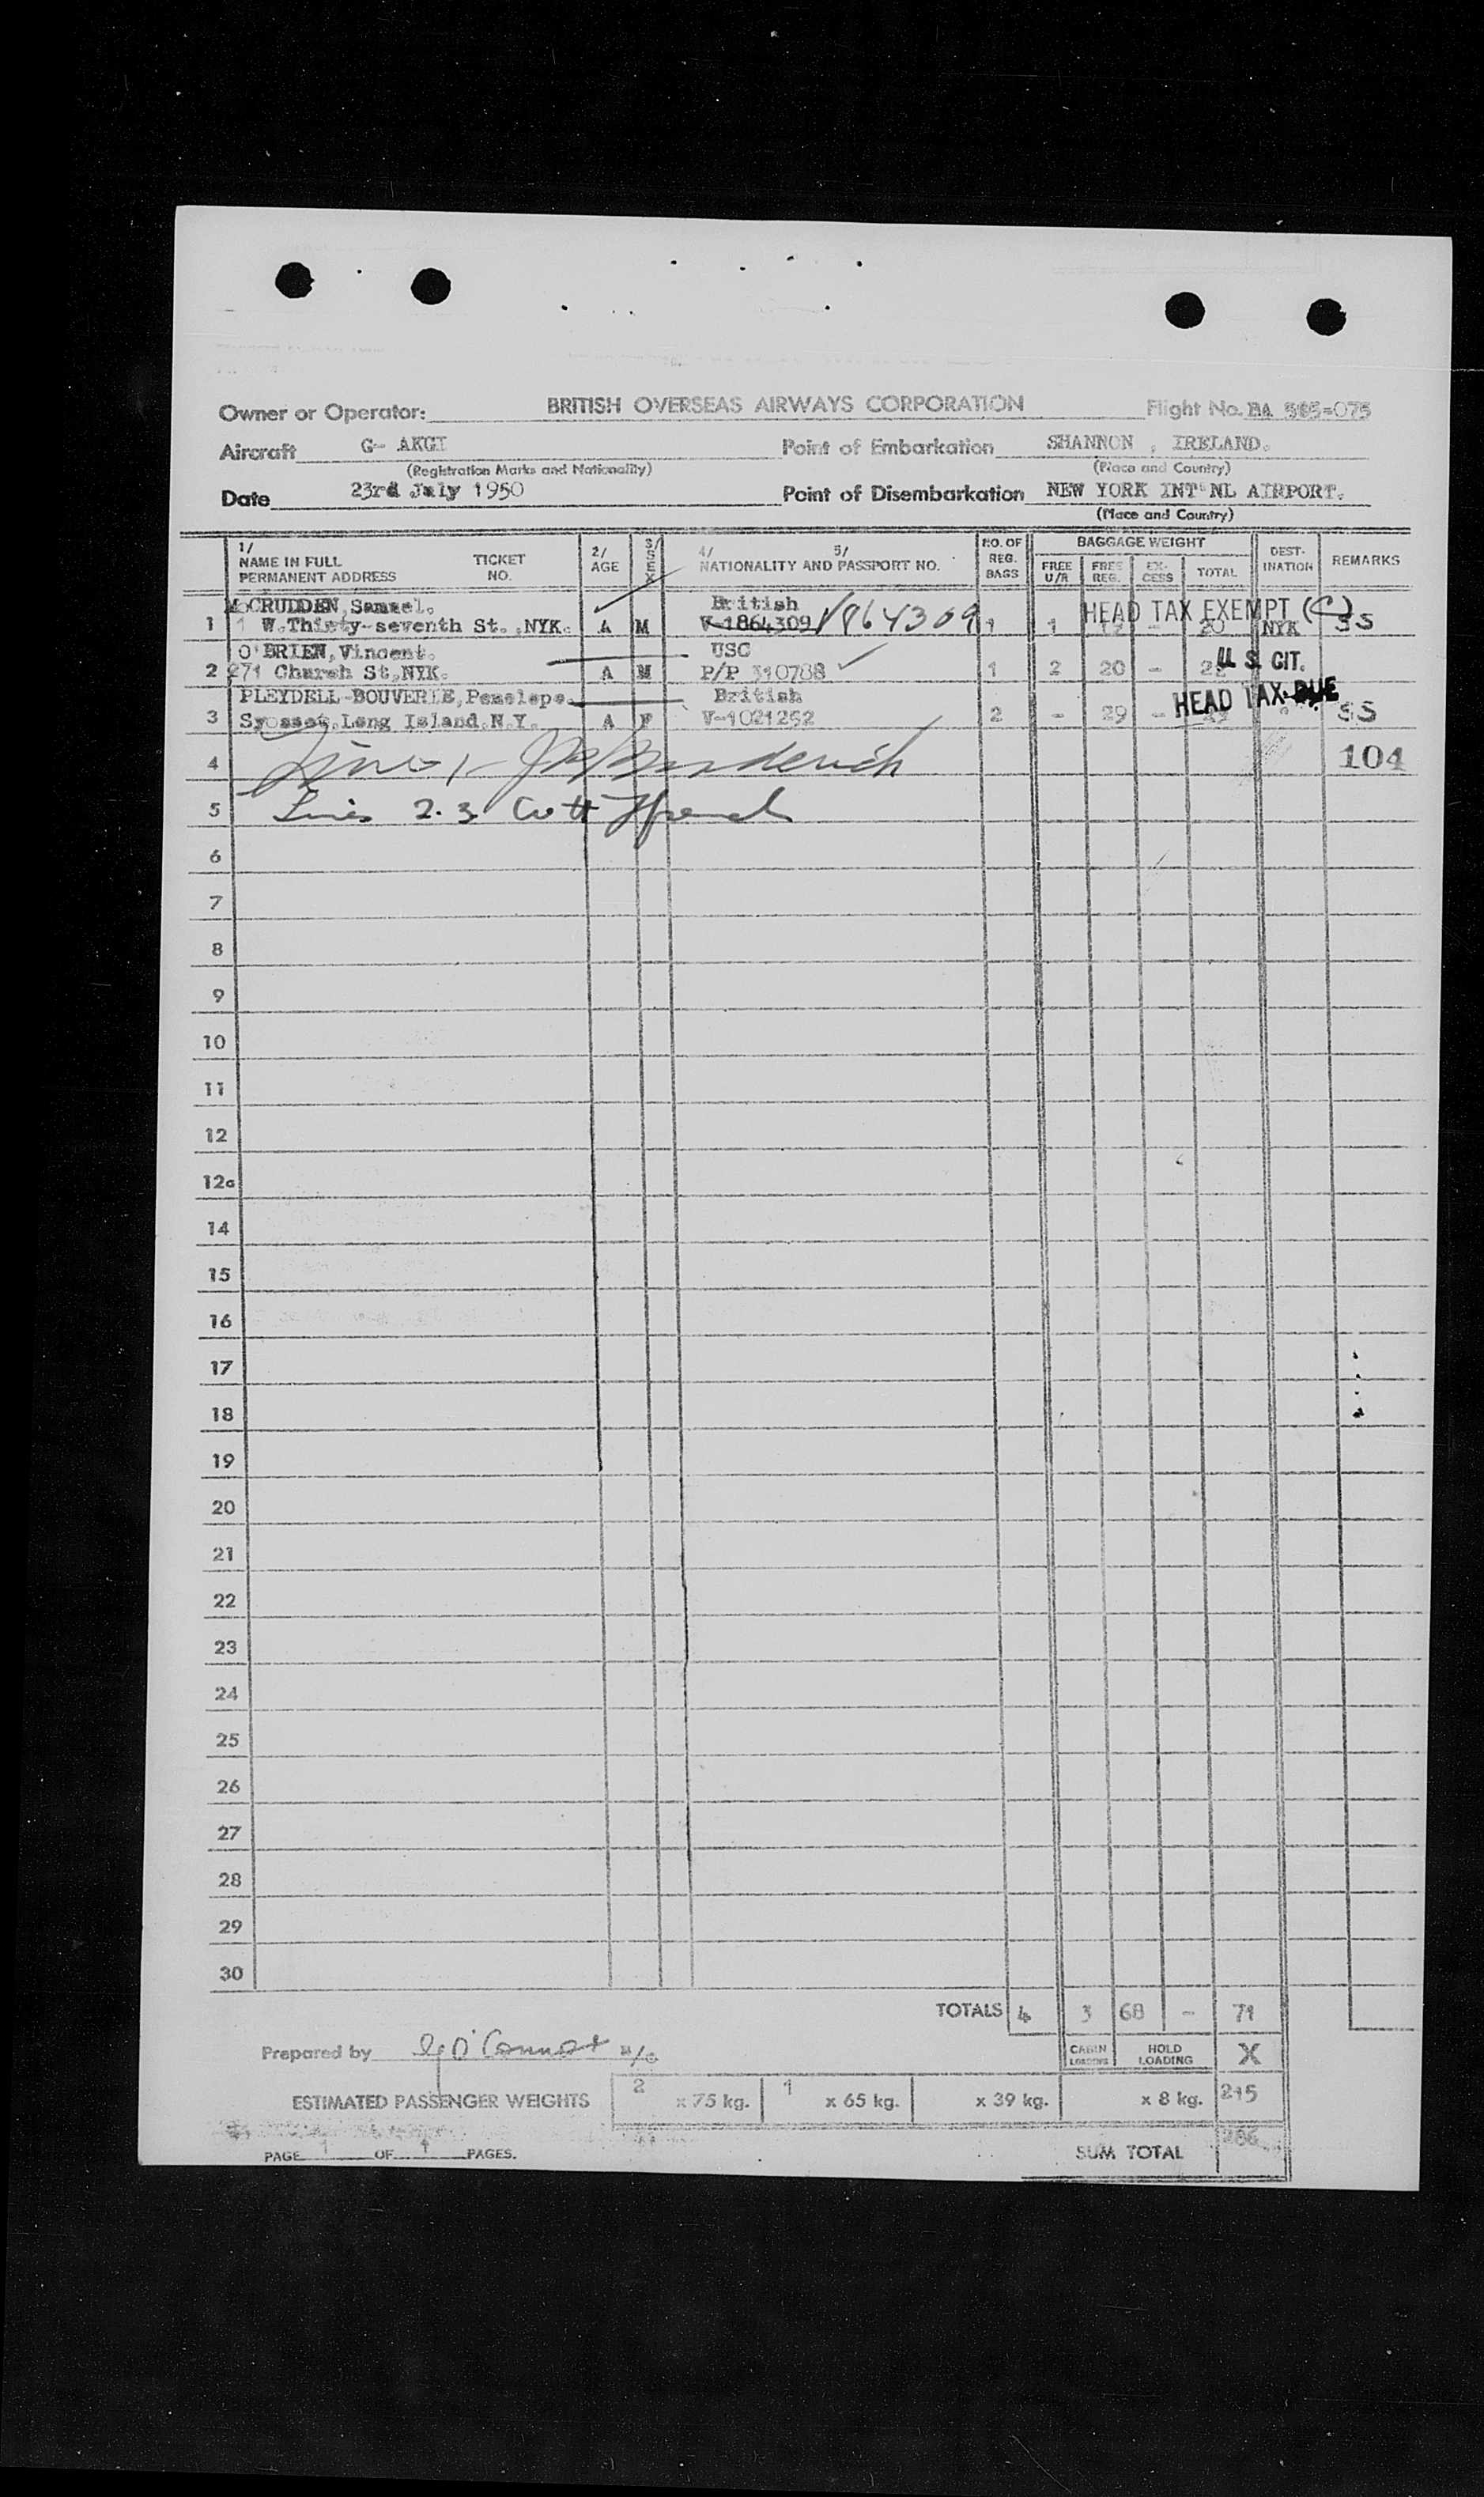 Owner or Operator: BRITISH OVERSEAS AIRWAYS CORPORATION Flight No. BA 505-075
Aircraft G- AKGI Point of Embarkation SHANNON , IRELAND.
(Registration Marks and Nationality) (Place and Country)
Date 23rd July 1950 Point of Disembarkation NEW YORK INT'NL AIRPORT.
(Place and Country)
1/ NAME IN FULL PERMANENT ADDRESS TICKET NO. 2/ AGE 3/ SEX 4/ 5/ NATIONALITY AND PASSPORT NO. NO. OF REG. BAGS BAGGAGE WEIGHT FREE U/A FREE REG. EX-CESS TOTAL DEST-INATION REMARKS
McCRUDDEN, Samuel. British HEAD TAX EXEMPT (C)
1 1 W.Thirty-seventh St. ,NYK. A M V-1864309 V864309 1 1 19 - 20 NYK SS
O'BRIEN, Vincent. USC U S. CIT.
2 271 Church St,NYK. A M P/P 310788 1 2 20 - 22
PLEYDELL-BOUVERIE, Penelope. British HEAD TAX DUE
3 Syosset,Long Island.N.Y. A F V-1021262 2 - 29 - SS
4 104
5 Lines 2.3
6
7
8
9
10
11
12
12a
14
15
16
17
18
19
20
21
22
23
24
25
26
27
28
29
30
TOTALS 4 3 68 - 71
Prepared by O'Connor CABIN LOADING HOLD LOADING X
ESTIMATED PASSENGER WEIGHTS 2 x 75 kg. 1 x 65 kg. x 39 kg. x 8 kg. 215
PAGE 1 OF 1 PAGES. SUM TOTAL 286